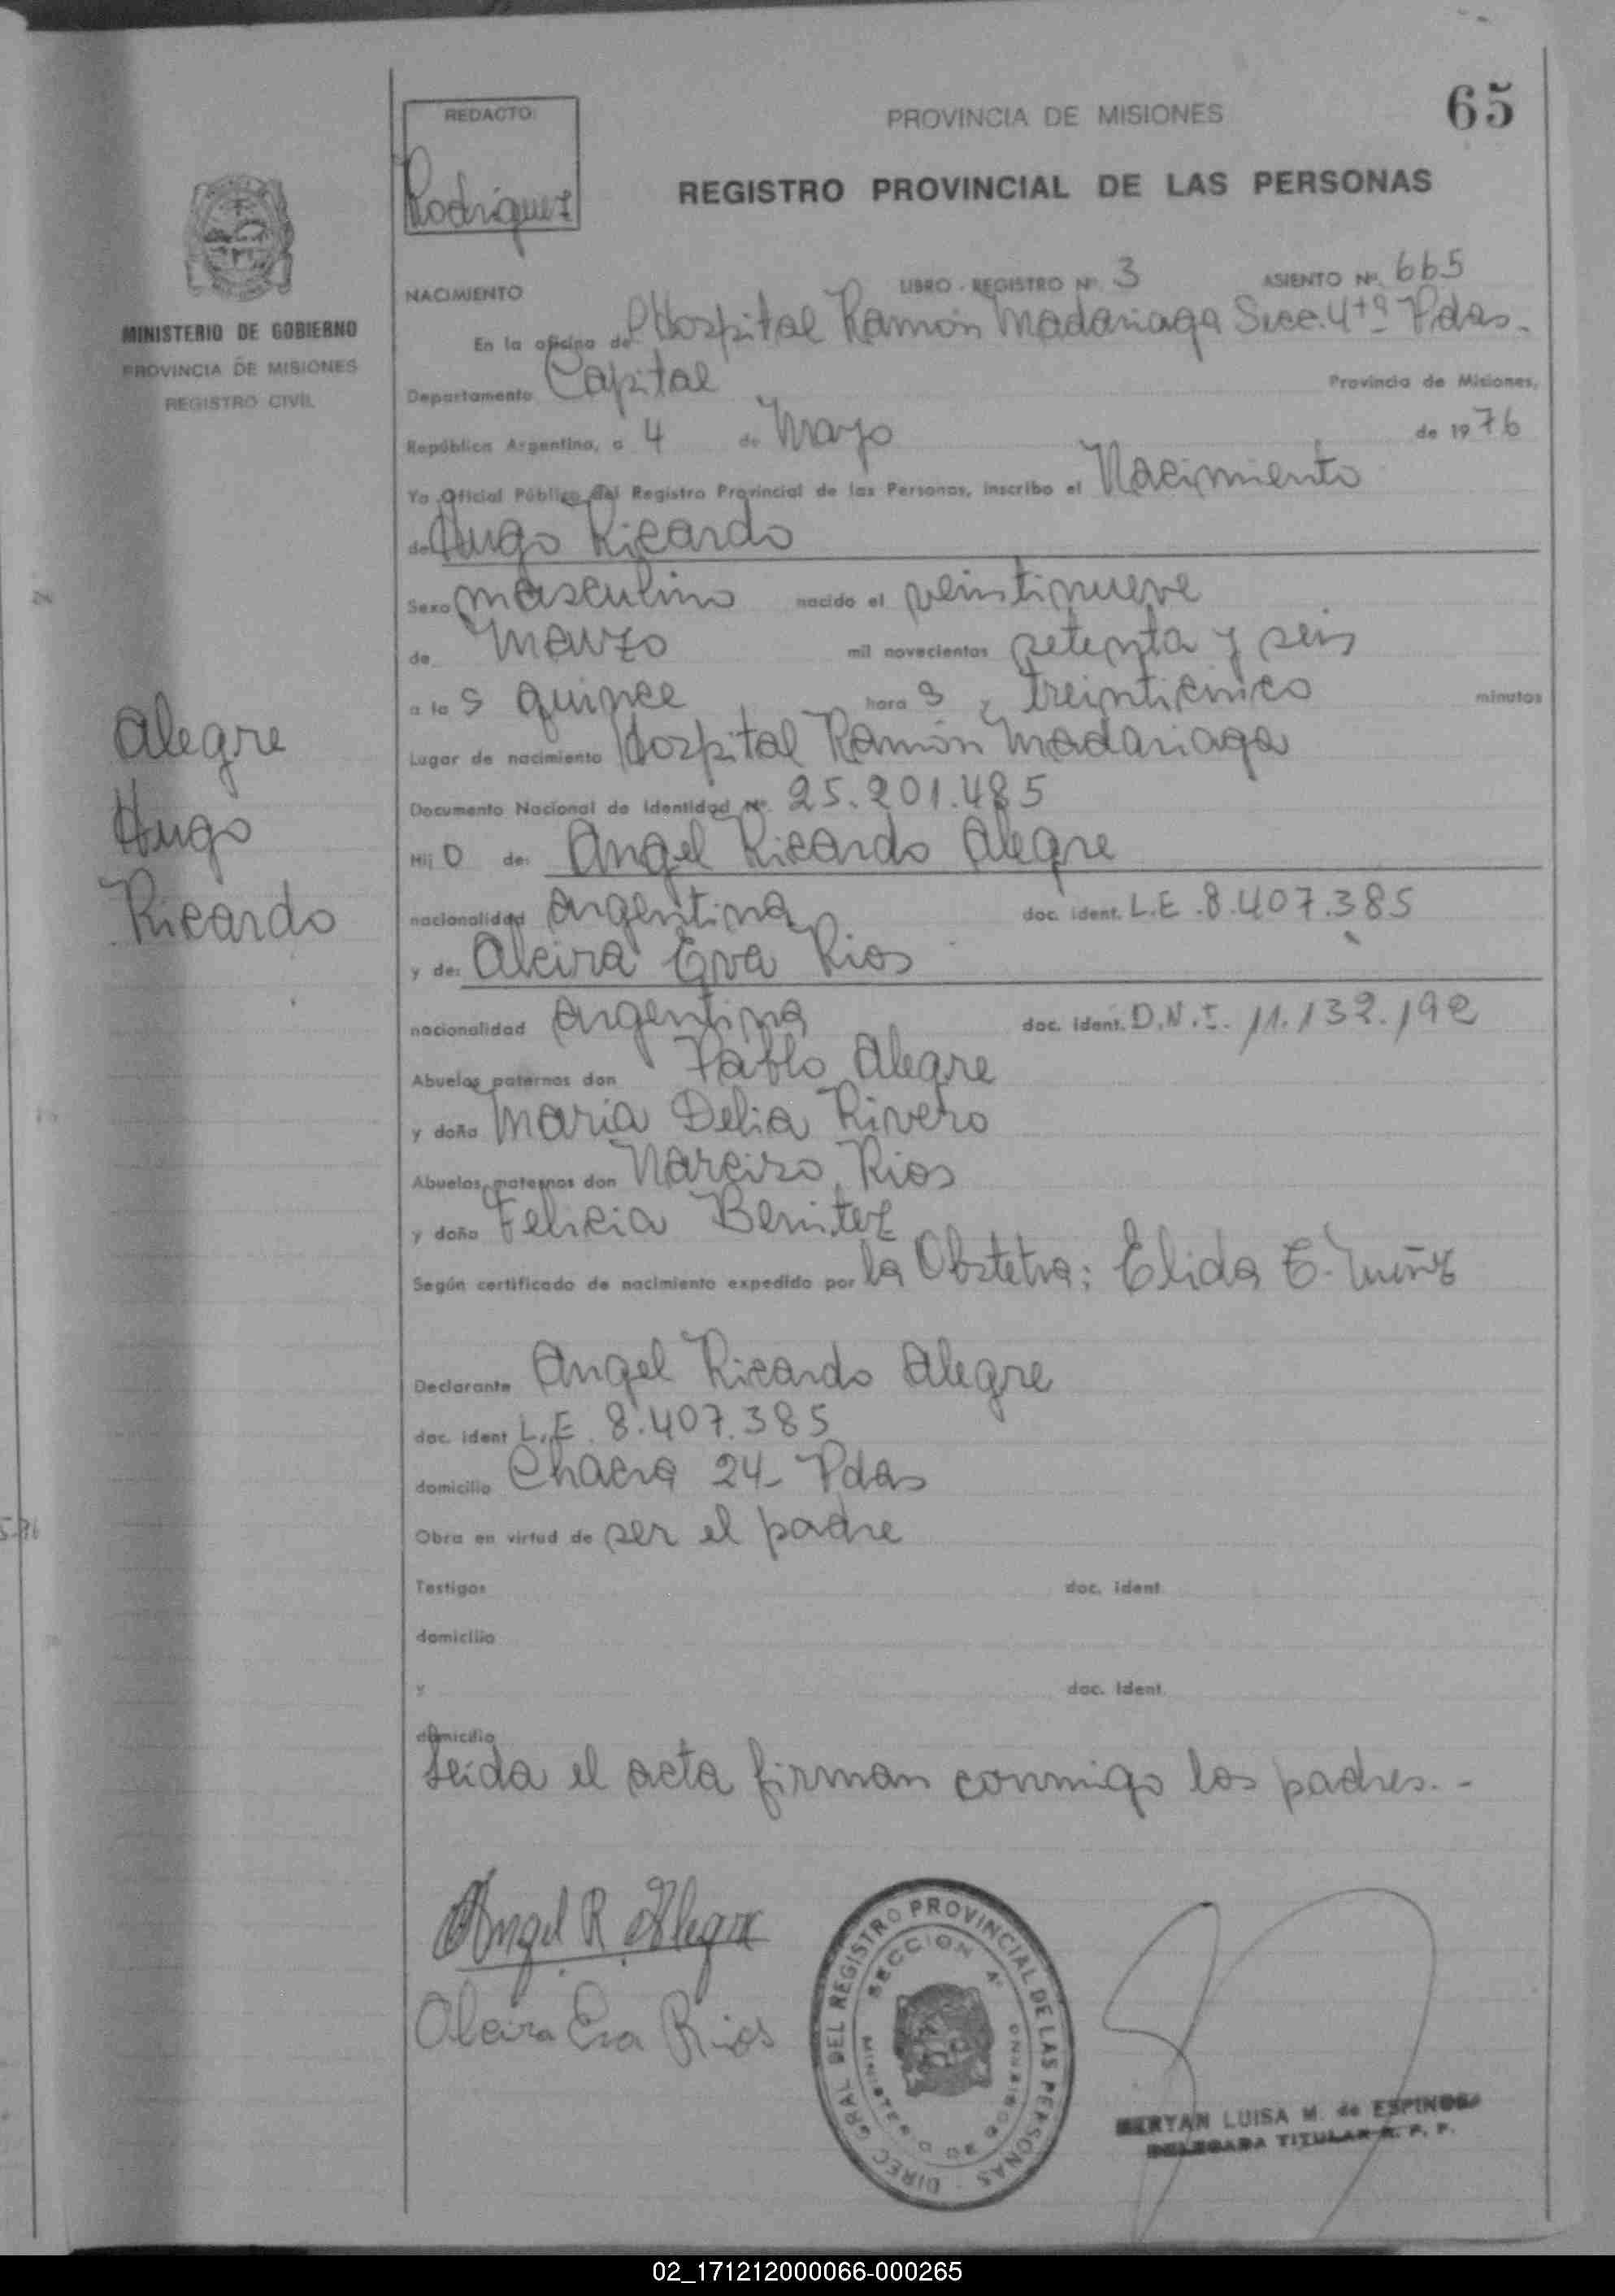 65
REDACTO:
Rodriguez
PROVINCIA DE MISIONES
REGISTRO PROVINCIAL DE LAS PERSONAS
MINISTERIO DE GOBIERNO
PROVINCIA DE MISIONES
REGISTRO CIVIL
NACIMIENTO LIBRO - REGISTRO Nº. 3 ASIENTO Nº. 665
En la oficina de Hospital Ramón Madariaga Secc. 4ta Pdas.
Departamento Capital Provincia de Misiones,
República Argentina, a 4 de Mayo de 1976
Yo Oficial Público del Registro Provincial de las Personas, inscribo el Nacimiento
de Hugo Ricardo
Sexo masculino nacido el veintinueve
de Marzo mil novecientos setenta y seis
a las quince horas y treinticinco minutos
Lugar de nacimiento Hospital Ramón Madariaga
Documento Nacional de Identidad Nº. 25.201.485
Hijo de: Angel Ricardo Alegre
nacionalidad argentina doc. ident. L.E. 8.407.385
y de: Alcira Eva Rios
nacionalidad argentina doc. ident. D.N.I. 11.132.192
Abuelos paternos don Pablo Alegre
y doña Maria Delia Rivero
Abuelos maternos don Narciso Rios
y doña Felicia Benitez
Según certificado de nacimiento expedido por la Obstetra: Elida E.
Declarante Angel Ricardo Alegre
doc. ident L.E. 8.407.385
domicilio Chacra 24- Pdas
Obra en virtud de ser el padre
Testigos doc. ident.
domicilio
y doc. ident.
domicilio
Leida el acta firman conmigo los padres.-
Alegre
Hugo
Ricardo
Angel R. Alegre
Alcira Eva Rios
DIREC. GRAL DEL REGISTRO PROVINCIAL DE LAS PERSONAS
SECCION 4ª
MINISTERIO DE GOBIERNO
LUISA M. de ESPINOSA
DELEGADA TITULAR R. P. P.
02_171212000066-000265